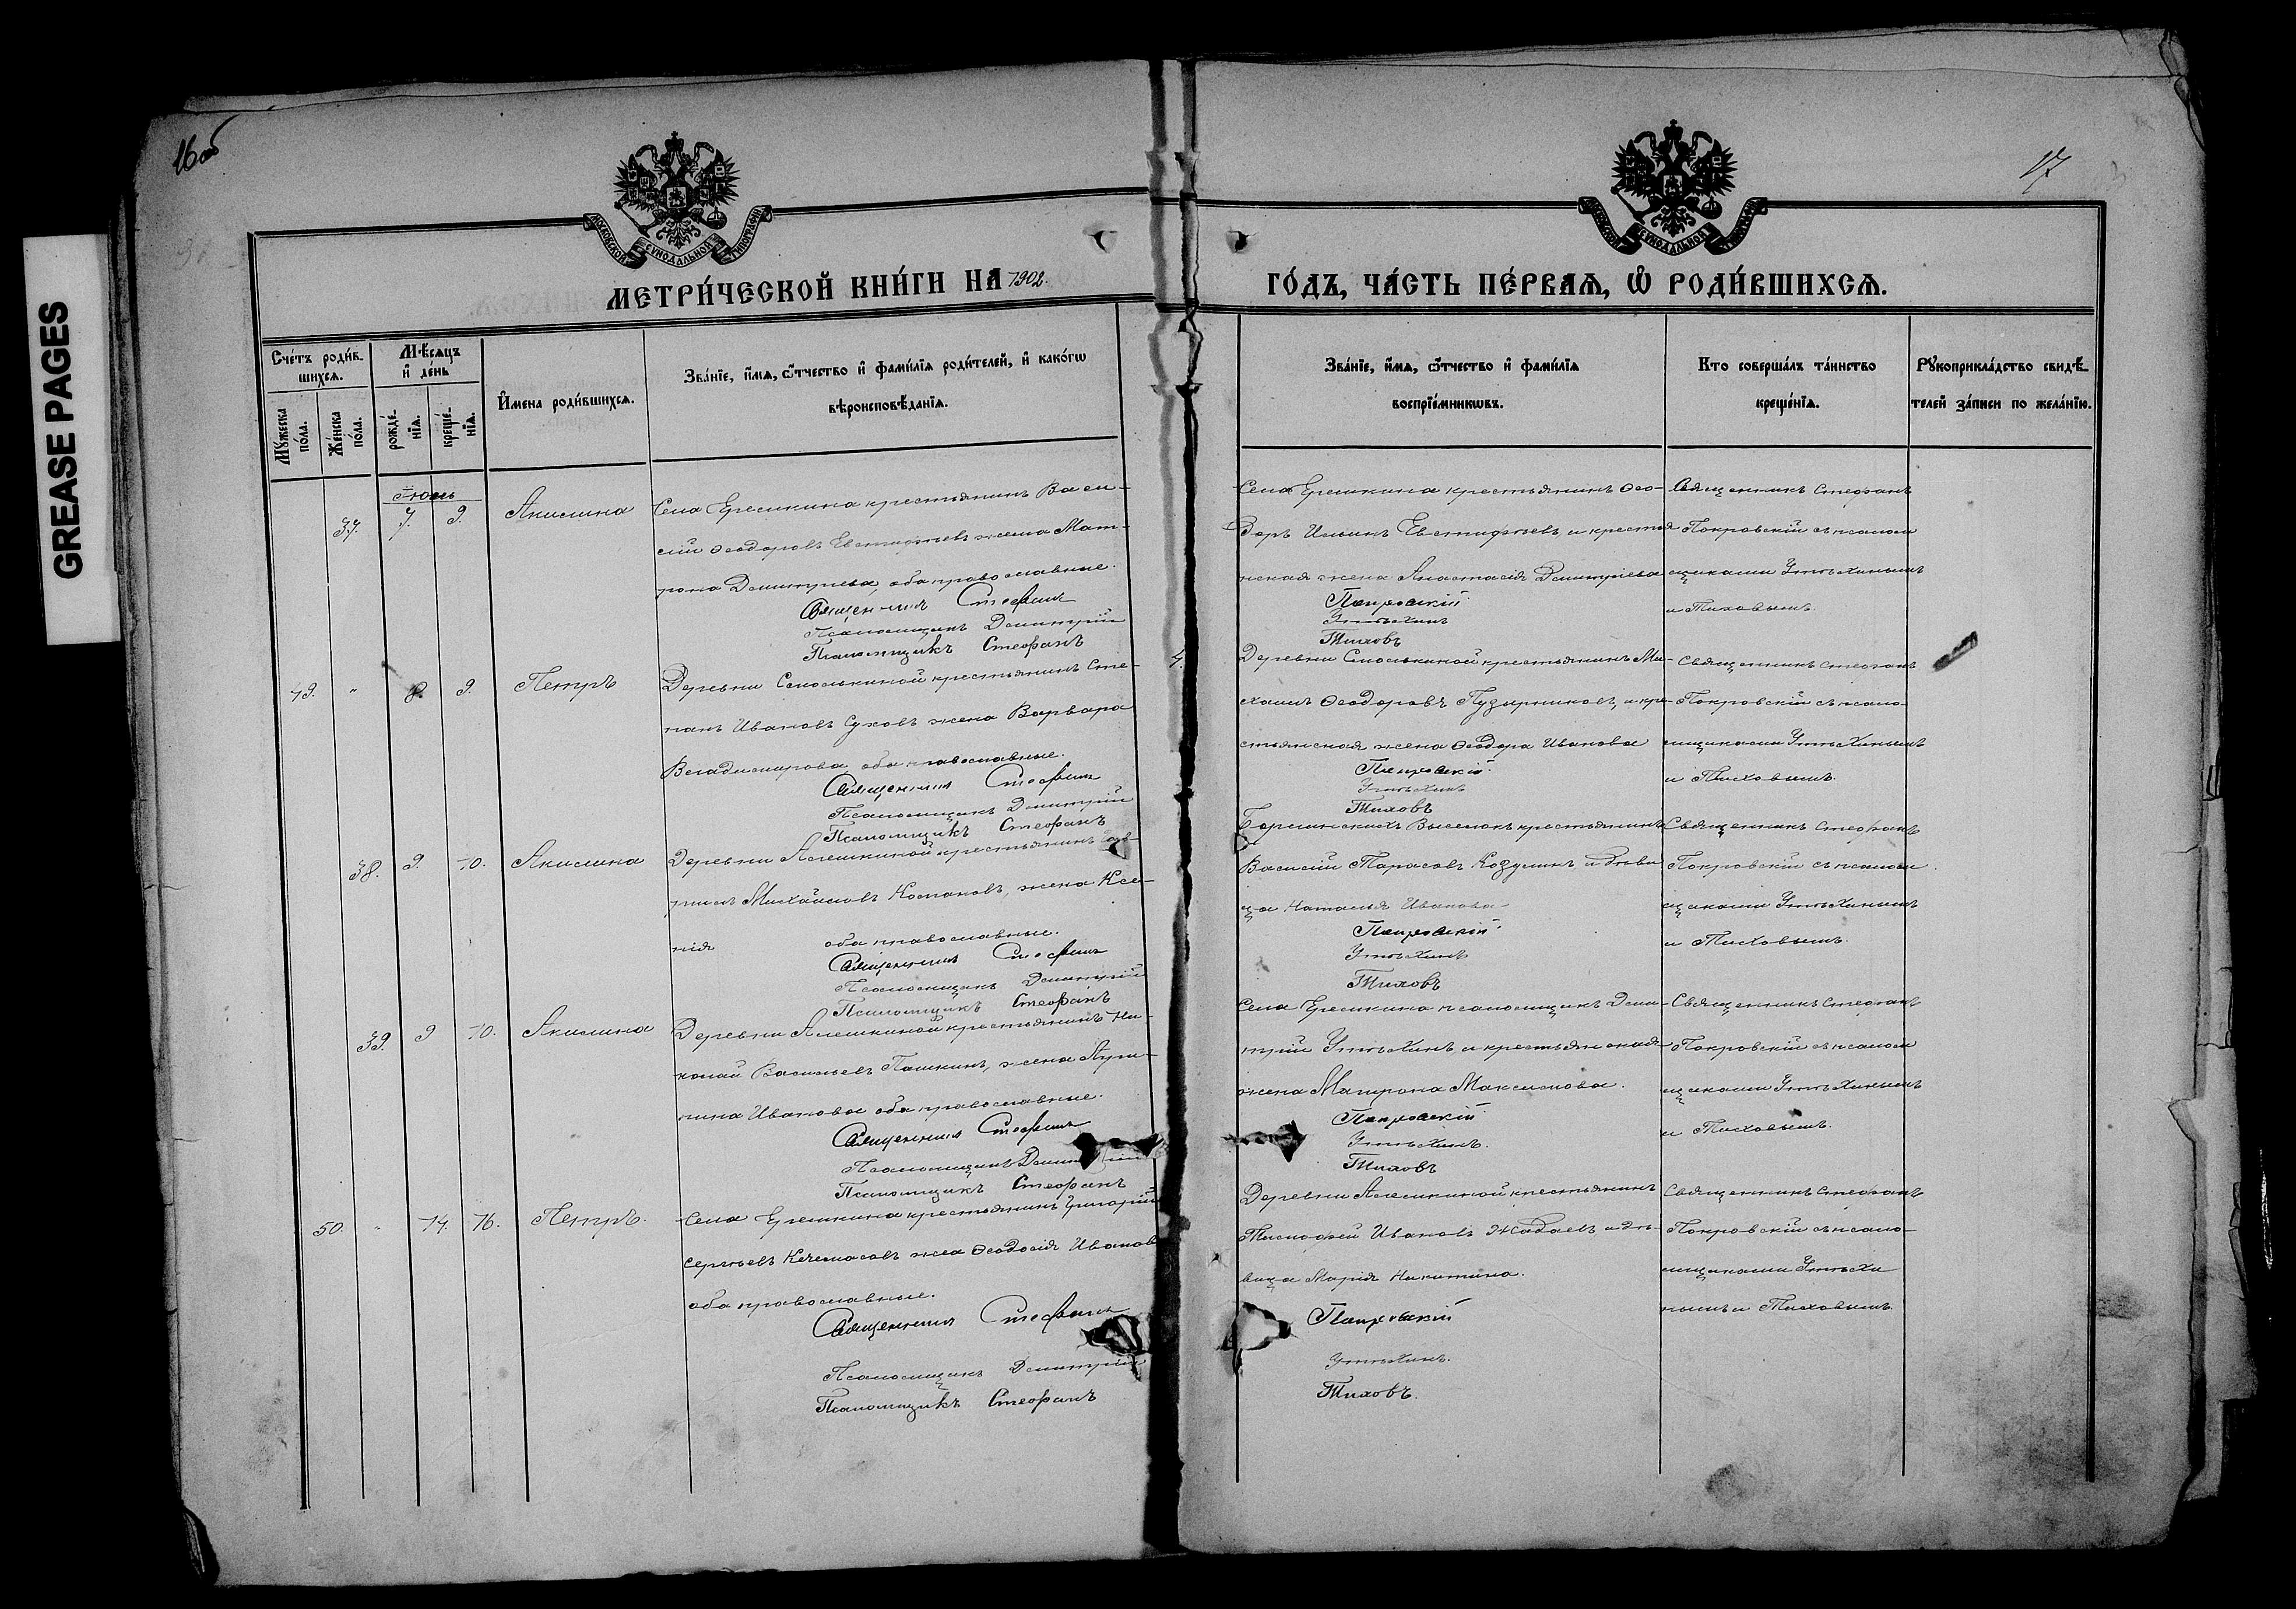 GREASE PAGES
16об
17
МОСКОВСКОЙ СѴНОДАЛЬНОЙ ТИПОГРАФІИ
МОСКОВСКОЙ СѴНОДАЛЬНОЙ ТИПОГРАФІИ
МЕТРИ́ЧЕСКОЙ КНИ́ГИ НА 1902.
ГО́ДЪ, ЧА́СТЬ ПЕ́РВАѦ, Ѡ҆ РОДИ́ВШИХСѦ.
Сче́тъ роди́в-
шихсѧ.
Мꙋ́жеска
по́ла.
Же́нска
по́ла.
Мѣ́сѧцъ
и҆ де́нь
рожде́-
нїѧ.
креще́-
нїѧ.
И҆мена роди́вшихсѧ.
Зва́нїе, и҆́мѧ, ѻ҆́тчество и҆ фами́лїѧ роди́телей, и҆ како́гѡ
вѣроисповѣ́данїѧ.
Зва́нїе, и҆́мѧ, ѻ҆́тчество и҆ фами́лїѧ
воспрїе́мникѡвъ.
Кто соверша́лъ та́инство
креще́нїѧ.
Рꙋкоприкла́дство свидѣ́-
телей за́писи по жела́нїю.
37. 7. 9. Акилина
Села Ерешкина крестьянинъ Васи-
лій Ѳеодоровъ Евстифѣевъ жена Мат-
рона Димитріева, оба православные.
Священникъ Стефанъ
Псаломщикъ Димитрій
Псаломщикъ Стефанъ
Села Ерешкина крестьянинъ Ѳео-
доръ Ильинъ Евстифѣевъ и крестья
нская жена Анастасія Димитріева
Покровскій
Утѣхинъ
Тиховъ
Священникъ Стефанъ
Покровскій съ псалом
щиками Утѣхинымъ
и Тиховымъ.
49. " 8. 9. Петръ
Деревни Смолькиной крестьянинъ Сте-
панъ Ивановъ Суховъ жена Варвара
Владимирова оба православные.
Священникъ Стефанъ
Псаломщикъ Димитрій
Псаломщикъ Стефанъ
Деревни Смолькиной крестьянинъ Ми-
хаилъ Ѳеодоровъ Пузырниковъ, и кре-
стьянская жена Ѳеодора Иванова
Покровскій.
Утѣхинъ
Тиховъ
Священникъ Стефанъ
Покровскій съ псало-
мщиками Утѣхинымъ
и Тиховымъ.
38. 9. 10. Акилина
Деревни Алешкиной крестьянинъ
Михайловъ жена Ксе-
нія оба православные.
Священникъ Стефанъ
Псаломщикъ Димитрій
Псаломщикъ Стефанъ
Выселокъ крестьянинъ
Василій Тарасовъ Козулинъ и дѣви
ца Наталья Иванова
Покровскій.
Утѣхинъ
Тиховъ
Священникъ Стефанъ
Покровскій съ псалом
щиками Утѣхинымъ
и Тиховымъ.
39. 9 10. Акилина
Деревни Алешкиной крестьянинъ Ни-
колай Васильевъ Пашкинъ, жена Агри-
пина Иванова оба православные.
Священникъ Стефанъ
Псаломщикъ
Псаломщикъ Стефанъ
Села Ерешкина псаломщикъ Дими-
трій Утѣхинъ и крестьянская
жена Матрона Максимова.
Покровскій
Утѣхинъ.
Тиховъ
Священникъ Стефанъ
Покровскій съ псалом
щиками Утѣхинымъ
и Тиховымъ.
50. " 14. 16. Петръ.
Села Ерешкина крестьянинъ Григорій
Сергѣевъ жена Ѳеодосія Иванов
оба православные.
Священникъ Стефанъ
Псаломщикъ Димитрій
Псаломщикъ Стефанъ
Деревни Алешкиной крестьянинъ
Тимофей Ивановъ Жадаевъ и дѣ-
вица Марія Никитина.
Покровскій
Утѣхинъ.
Тиховъ.
Священникъ Стефанъ
Покровскій съ псало-
мщиками Утѣхи
нымъ и Тиховымъ.